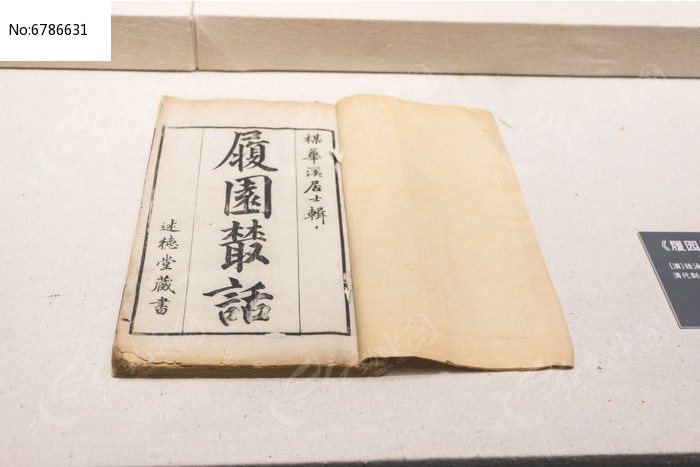 No:6786631
楳華溪居士輯
履園叢話
述德堂藏書
《履园
[清]钱泳
清代刻